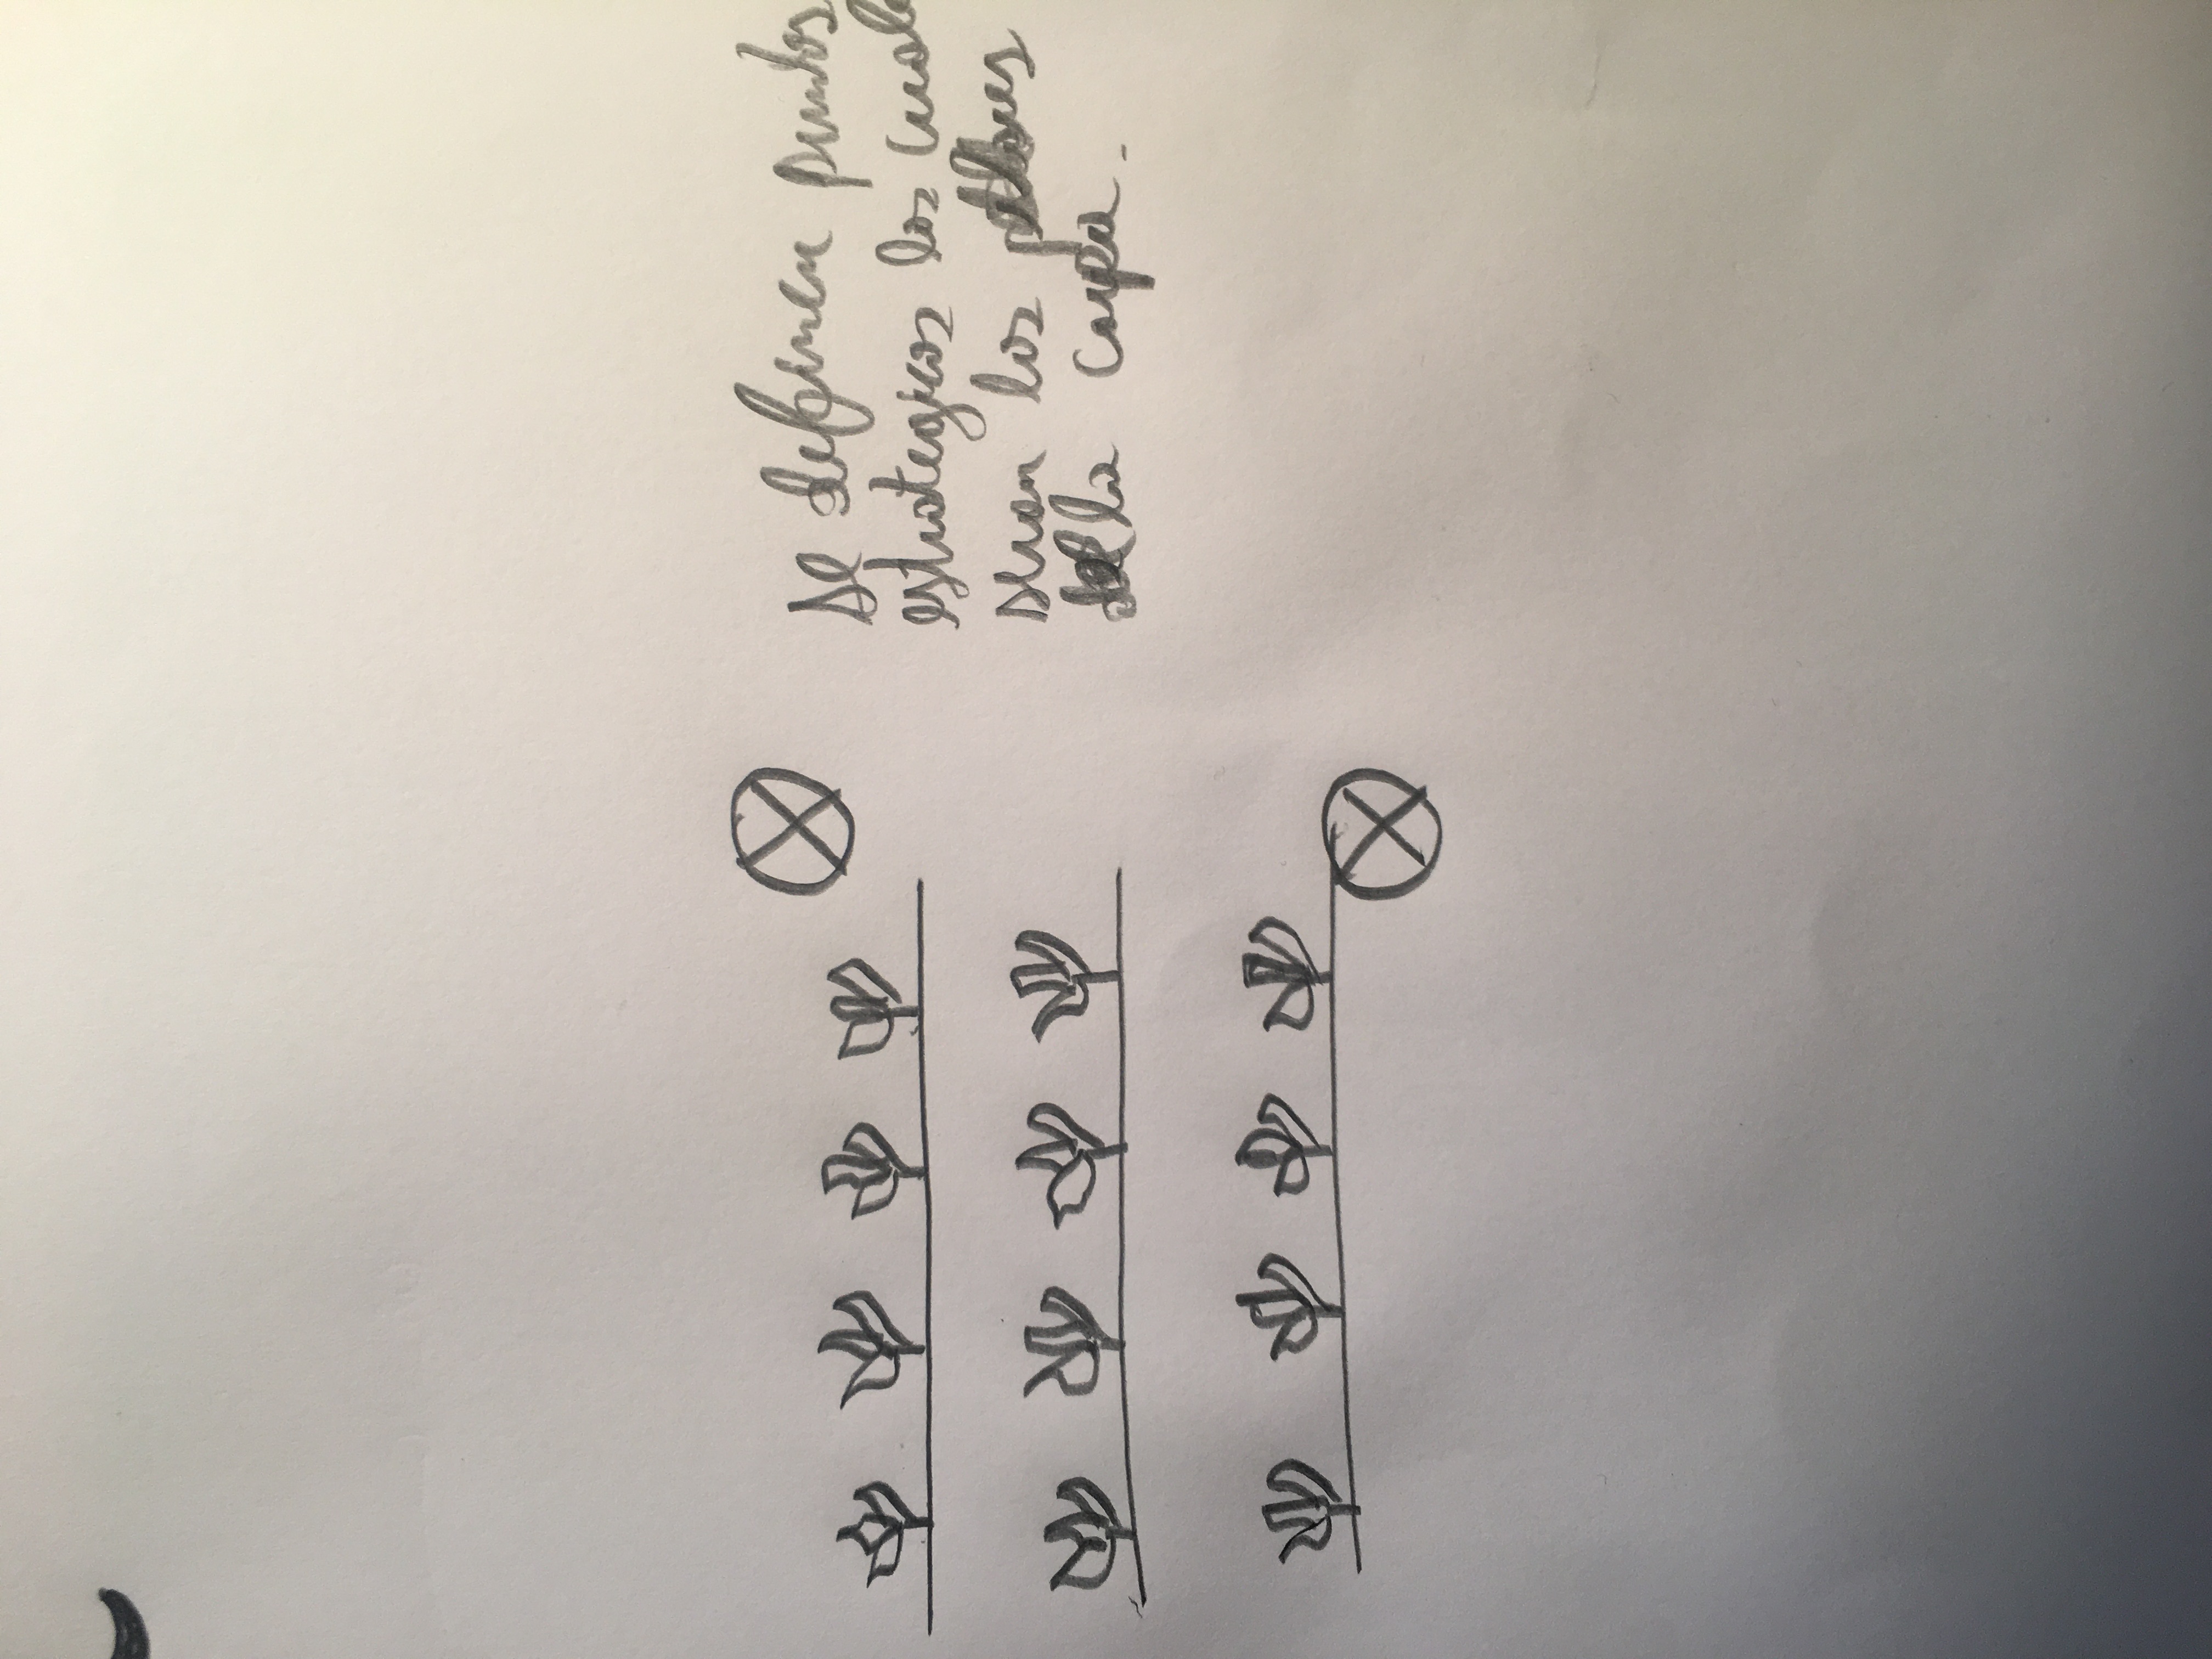 se definen puntos
estrategicos los cuale
seran los pilares
de la carpa.